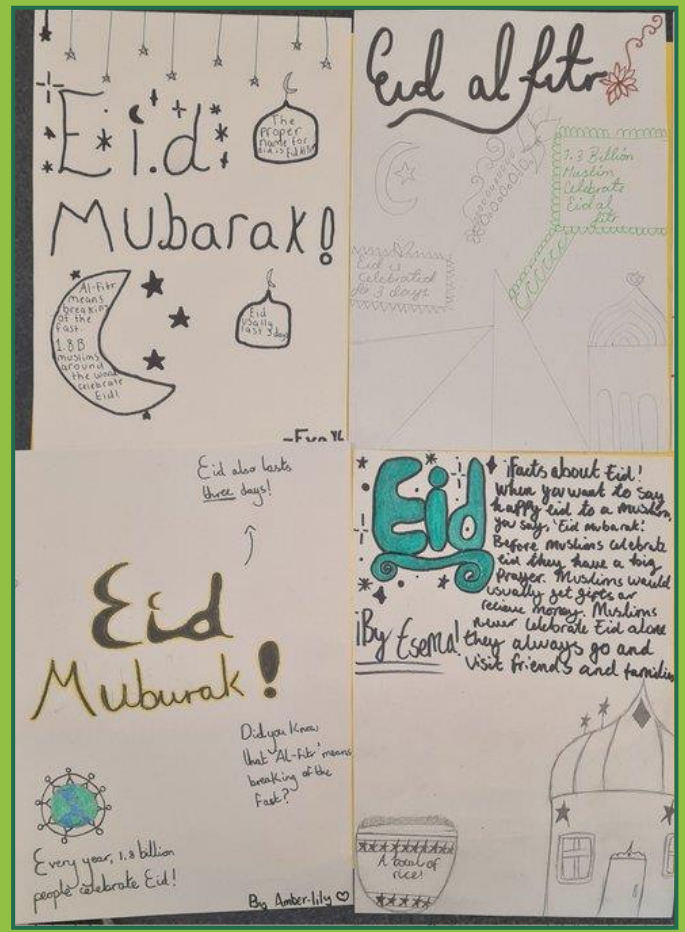 Eid
Mubarak!
The
Proper
name for
Eid is Eid Al-Fitr
Al-Fitr
means
breaking
of the
fast.
1.8 B
muslims
around
the world
celebrate
Eid!
Eid
usally
last 3 days
Eid al fitr
1.3 Billion
Muslim
Celebrate
Eid al
fitr
Eid is
Celebrated
for 3 days
Eid also lasts
three days!
Eid
Muburak!
Did you know
that 'Al-fitr' means
breaking of the
Fast?
Every year, 1.8 billion
people celebrate Eid!
By Amber-lily
Eid
¡Facts about Eid!
When you want to say
happy eid to a muslim,
you say, 'Eid mubarak!
Before muslims celebrate
eid they have a big
Prayer. Muslims would
usually get gifts or
recieve money. Muslims
never celebrate Eid alone
they always go and
visit friends and families
¡By Esema!
A bowl of
rice!